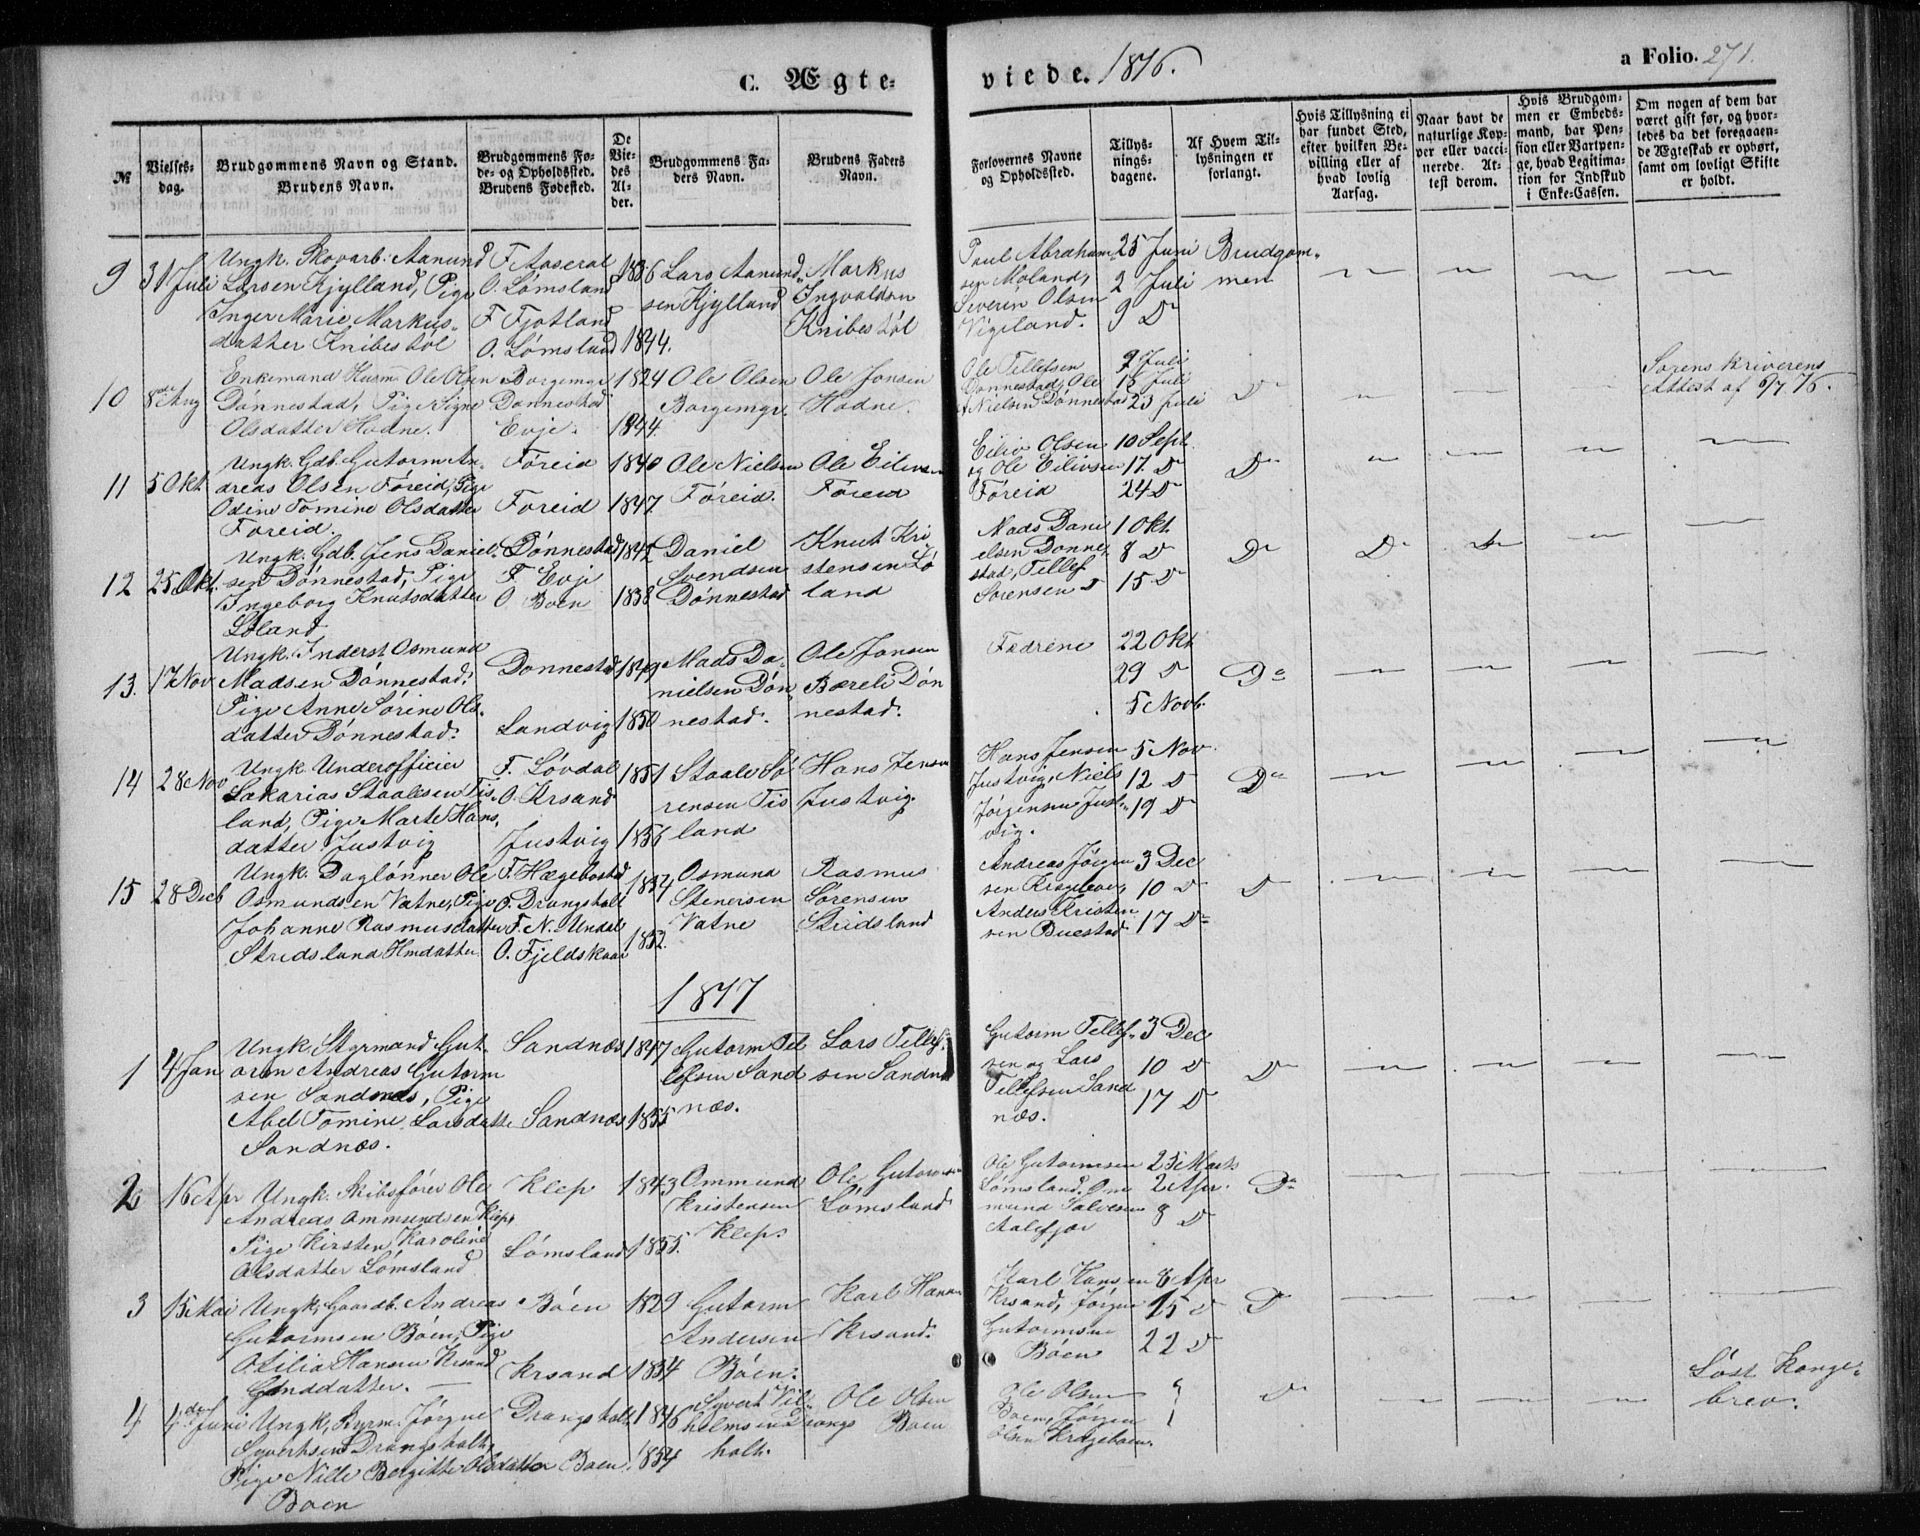 C. Ægteviede. 1876.
a Folio. 271.
№
Vielsesdag.
Brudgommens Navn og Stand.
Brudens Navn.
Brudgommens Føde- og Opholdssted.
Brudens Fødested.
De Viedes Alder.
Brudgommens Faders Navn.
Brudens Faders Navn.
Forlovernes Navne og Opholdssted.
Tillysningsdagene.
Af Hvem Tillysningen er forlangt.
Hvis Tillysning ei har fundet Sted, efter hvilken Bevilling eller af hvad lovlig Aarsag.
Naar havt de naturlige Kopper eller vaccinerede. Attest derom.
Hvis Brudgommen er Embedsmand, har Pension eller Vartpenge, hvad Legitimation for Indskud i Enke-Cassen.
Om nogen af dem har været gift før, og hvorledes da det foregaaende Ægteskab er ophørt, samt om lovligt Skifte er holdt.
9 31 Juli
Ungk. Skovarb. Aanund
Larsen Kjylland, Pige
Inger Marie Markus-
datter Knibestøl
F. Aaseral
O. Lømsland
F. Fjotland
O. Lømsland
1836
1844.
Lars Aanund-
sen Kjylland
Markus
Ingvaldsen
Knibestøl
Paul Abraham-
sen Moland,
Severin Olsen
Vigeland.
25 Juni
2 Juli
9 D
Brudgom-
men
10 8de Aug
Enkemand Husm. Ole Olsen
Dønnestad, Pige Signe
Olsdatter Hodne.
Borgemyr
Dønnestad
Evje.
1824
1844.
Ole Olsen
Borgemyr.
Ole Jonsen
Hodne.
Ole Tellefsen
Dønnestad, Ole
Nielsen Dønnestad
9 Juli
15 Juli
23 Juli
D
Sorenskriverens
Attest af 6/7. 76.
11 5 Okt
Ungk. Gdb. Gutorm An-
dreas Olsen Føreid, Pige
Odine Tomine Olsdatter
Føreid.
Føreid
Føreid
1840
1847
Ole Nielsen
Føreid.
Ole Eilivsen
Føreid
Eiliv Olsen
og Ole Eilivsen
Føreid
10 Sept.
17. D
24 D
D
12 25 Okt.
Ungk. Gdb. Jens Daniel-
sen Dønnestad, Pige
Ingeborg Knutsdatter
Løland
Dønnestad
F. Evje
O. Boen
1842
1838
Daniel
Svendsen
Dønnestad
Knut Kri-
stensen Lø
land
Mads Dani
elsen Dønne-
stad, Tellef
Sørensen D
1 Okt.
8 D
15 D
D
13. 17 Nov
Ungk. Inderst Osmund
Madsen Dønnestad,
Pige Anne Sørine Ols-
datter Dønnestad.
Dønnestad
Sandvig
1849
1850
Mads Da-
nielsen Døn-
nestad.
Ole Jonsen
Bæreli Døn
nestad.
Fædrene
22 Okt
29 D
5 Novb.
D
14 28 Nov
Ungk. Underofficier
Sakarias Staalesen Tis-
land, Pige Marte Hans-
datter Justvig
F. Løvdal
O. Krsand
Justvig
1851
1856
Staale Sø
rensen Tis
land
Hans Jensen
Justvig.
Hans Jensen
Justvig, Niels
Jørgensen Just-
vig.
5 Nov.
12 D
19 D
D
15 28 Decb
Ungk. Daglønner Ole
Osmundsen Vatne, Pige
Johanne Rasmusdatter
Stridsland Hmdatter
F. Hægebostad
O. Drangsholt
F. N. Undal
O. Fjeldskaar
1852.
Osmund
Stenersen
Vatne
Rasmus
Sørensen
Stridsland
Andreas Jørgen
sen Krageboen,
Anders Kristen
sen Buestad
3 Dec
10 D
17 D
D
1877
1 4 Jan
Ungk. Styrmand Gut-
orm Andreas Gutorm
sen Sandnæs, Pige
Abel Tomine Larsdatter
Sandnæs.
Sandnæs
Sandnæs
1847
1855
Gutorm Tel
lefsen Sand
næs.
Lars Tellef-
sen Sandnæs
Gutorm Tellef-
sen og Lars
Tellefsen Sand
næs.
3 Dec
10 D
17 D
D
2 16 Apr
Ungk. Skibsfører Ole
Andreas Ommundsen Klep,
Pige Kirsten Karoline
Olsdatter Lømsland
Klep
Lømsland
1843
1855.
Ommund
Kristensen
Klep.
Ole Gutormsen
Lømsland
Ole Gutormsen
Lømsland. Om
mund Salvesen
Aalefjær
25 Marts
2 Apr.
8 D
D
3 15 Mai
Ungk. Gaardb. Andreas
Gutormsen Boen, Pige
Otilia Hansen Krsand
Boen
Krsand
1829
1834
Gutorm
Andersen
Boen.
Karl Hansen
Krsand.
Karl Hansen
Krsand, Jørgen
Gutormsen
Boen
8 Apr
15 D
22 D
D
4 4de Juni
Ungk. Jørgen
Syvertsen Drangsholt,
Pige Nille Bergitte Olsdatter
Boen
Drangsholt
Boen
1846
1854
Syvert Vil-
helmsen Drangs
holt.
Ole Olsen
Boen
Ole Olsen
Boen, Jørgen
Olsen Krageboen.
D
Løst Konge-
brev.